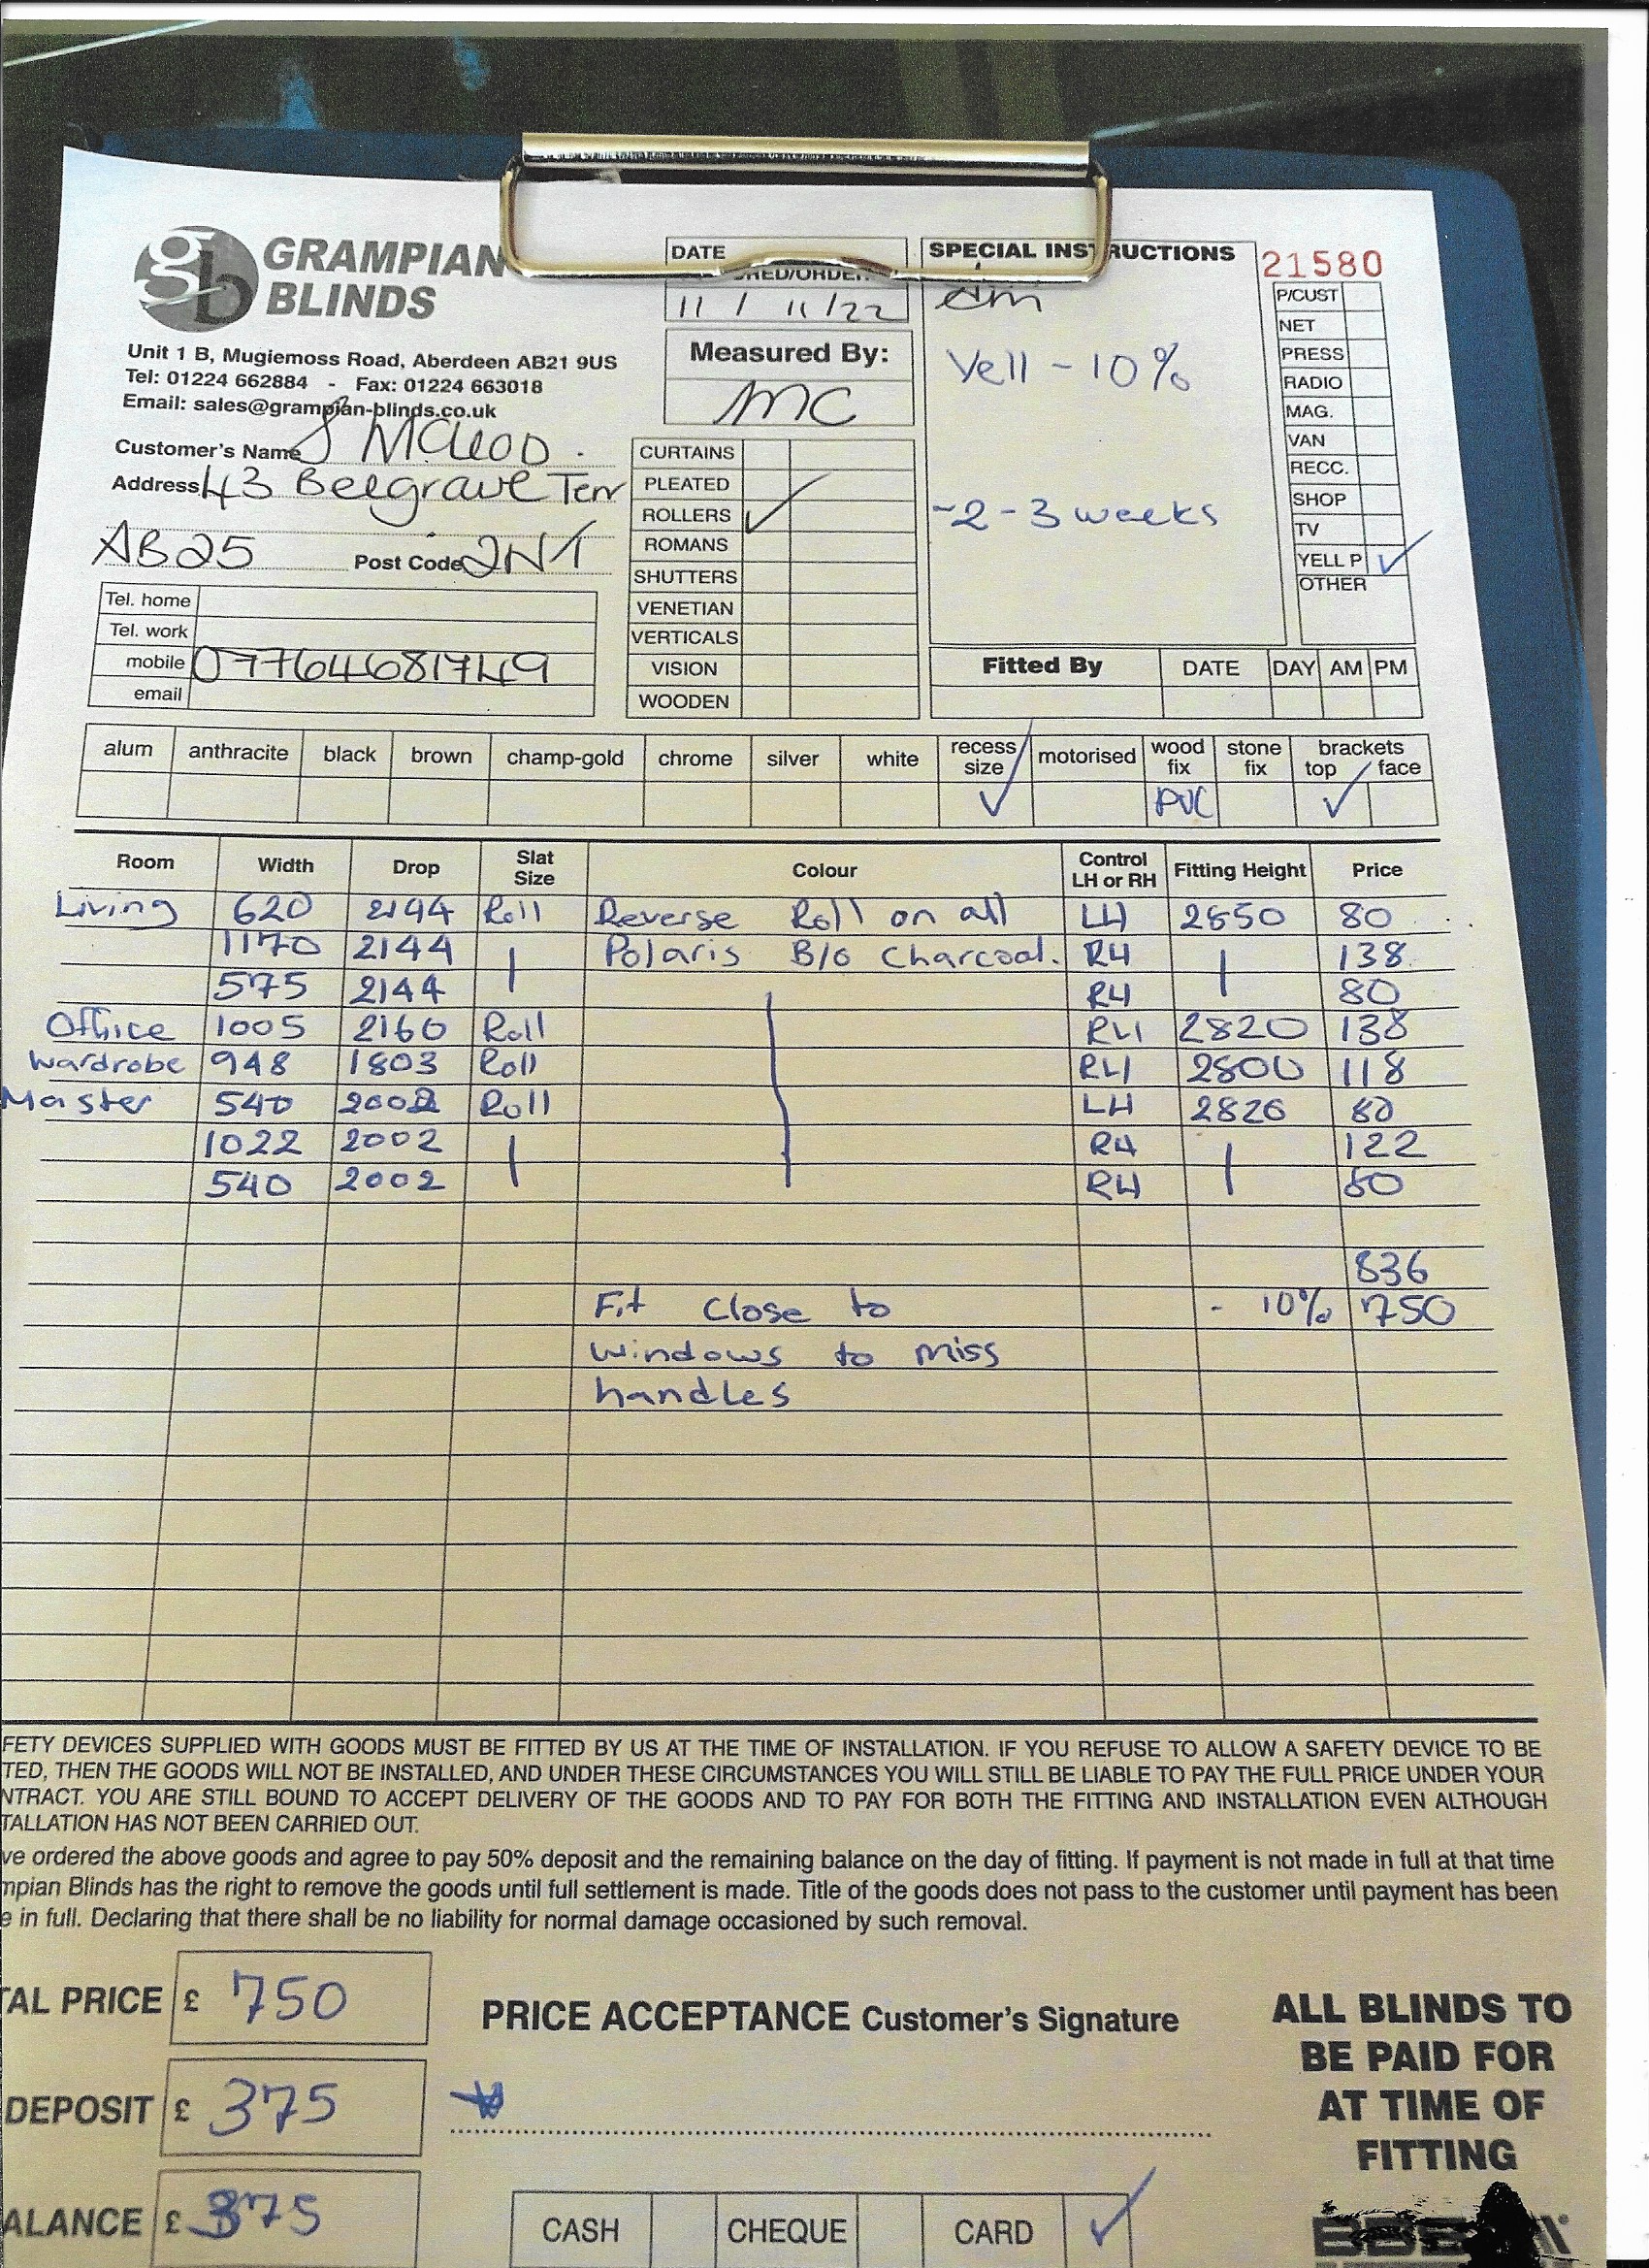 GRAMPIAN
BLINDS
Unit 1 B, Mugiemoss Road, Aberdeen AB21 9US
Tel: 01224 662884 - Fax: 01224 663018
Email: sales@grampian-blinds.co.uk
Customer's Name J McLeod.
Address 43 Belgrave Terr
AB25 Post Code 2NT
Tel. home
Tel. work
mobile 07764681749
email
DATE
11 / 11/22
Measured By:
MC
CURTAINS
PLEATED
ROLLERS ✓
ROMANS
SHUTTERS
VENETIAN
VERTICALS
VISION
WOODEN
SPECIAL INSTRUCTIONS
Yell - 10%
~2-3 weeks
21580
P/CUST
NET
PRESS
RADIO
MAG.
VAN
RECC.
SHOP
TV
YELL P ✓
OTHER
Fitted By DATE DAY AM PM
alum anthracite black brown champ-gold chrome silver white recess size ✓ motorised wood fix PVC stone fix brackets top ✓ face
Room Width Drop Slat Size Colour Control LH or RH Fitting Height Price
Living 620 2144 Roll Reverse Roll on all LH 2850 80
1170 2144 Polaris B/o Charcoal. RH 138
575 2144 RH 80
Office 1005 2160 Roll RH 2820 138
Wardrobe 948 1803 Roll RH 2800 118
Master 540 2002 Roll LH 2820 80
1022 2002 RH 122
540 2002 RH 80
836
Fit Close to - 10% 750
windows to miss
handles
FETY DEVICES SUPPLIED WITH GOODS MUST BE FITTED BY US AT THE TIME OF INSTALLATION. IF YOU REFUSE TO ALLOW A SAFETY DEVICE TO BE
TED, THEN THE GOODS WILL NOT BE INSTALLED, AND UNDER THESE CIRCUMSTANCES YOU WILL STILL BE LIABLE TO PAY THE FULL PRICE UNDER YOUR
NTRACT. YOU ARE STILL BOUND TO ACCEPT DELIVERY OF THE GOODS AND TO PAY FOR BOTH THE FITTING AND INSTALLATION EVEN ALTHOUGH
TALLATION HAS NOT BEEN CARRIED OUT.
ve ordered the above goods and agree to pay 50% deposit and the remaining balance on the day of fitting. If payment is not made in full at that time
mpian Blinds has the right to remove the goods until full settlement is made. Title of the goods does not pass to the customer until payment has been
e in full. Declaring that there shall be no liability for normal damage occasioned by such removal.
TAL PRICE £ 750
DEPOSIT £ 375
ALANCE £ 375
PRICE ACCEPTANCE Customer's Signature
CASH CHEQUE CARD ✓
ALL BLINDS TO
BE PAID FOR
AT TIME OF
FITTING